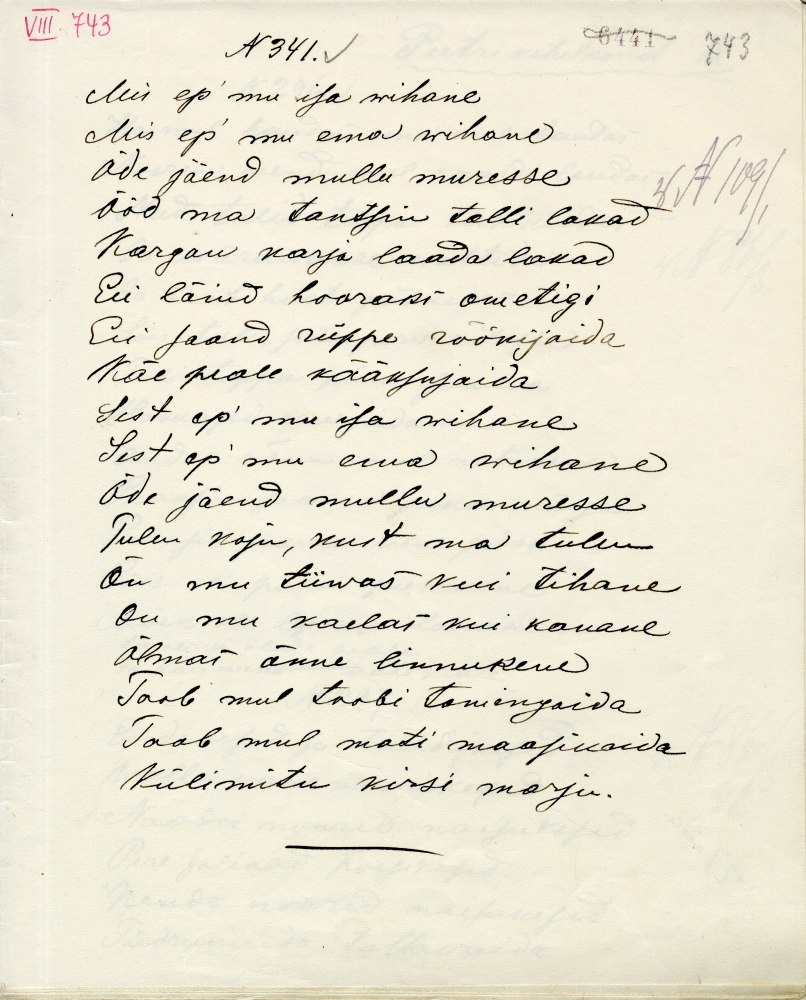 VIII. 743
6441 743
N 341.
Mis ep' mu isa wihane
Mis ep' mu ema wihane
Öde jäend mullu muresse
Ööd ma tantsin talli lakad
Kargan karja laada lakad
Ei läind hooraks ometigi
Ei saand rüppe röökijaida
Käe peale kääksujaida
Sest ep' mu isa wihane
Sest ep' mu ema wihane
Öde jäend mullu muresse
Tulen koju, kust ma tulen
On mu tiiwas kui tihane
On mu kaelas kui kanane
Õlmas õnne linnukene
Toob mul toobi toomingaida
Toob mul mati maasikaida
Külimitu kirsi marju.